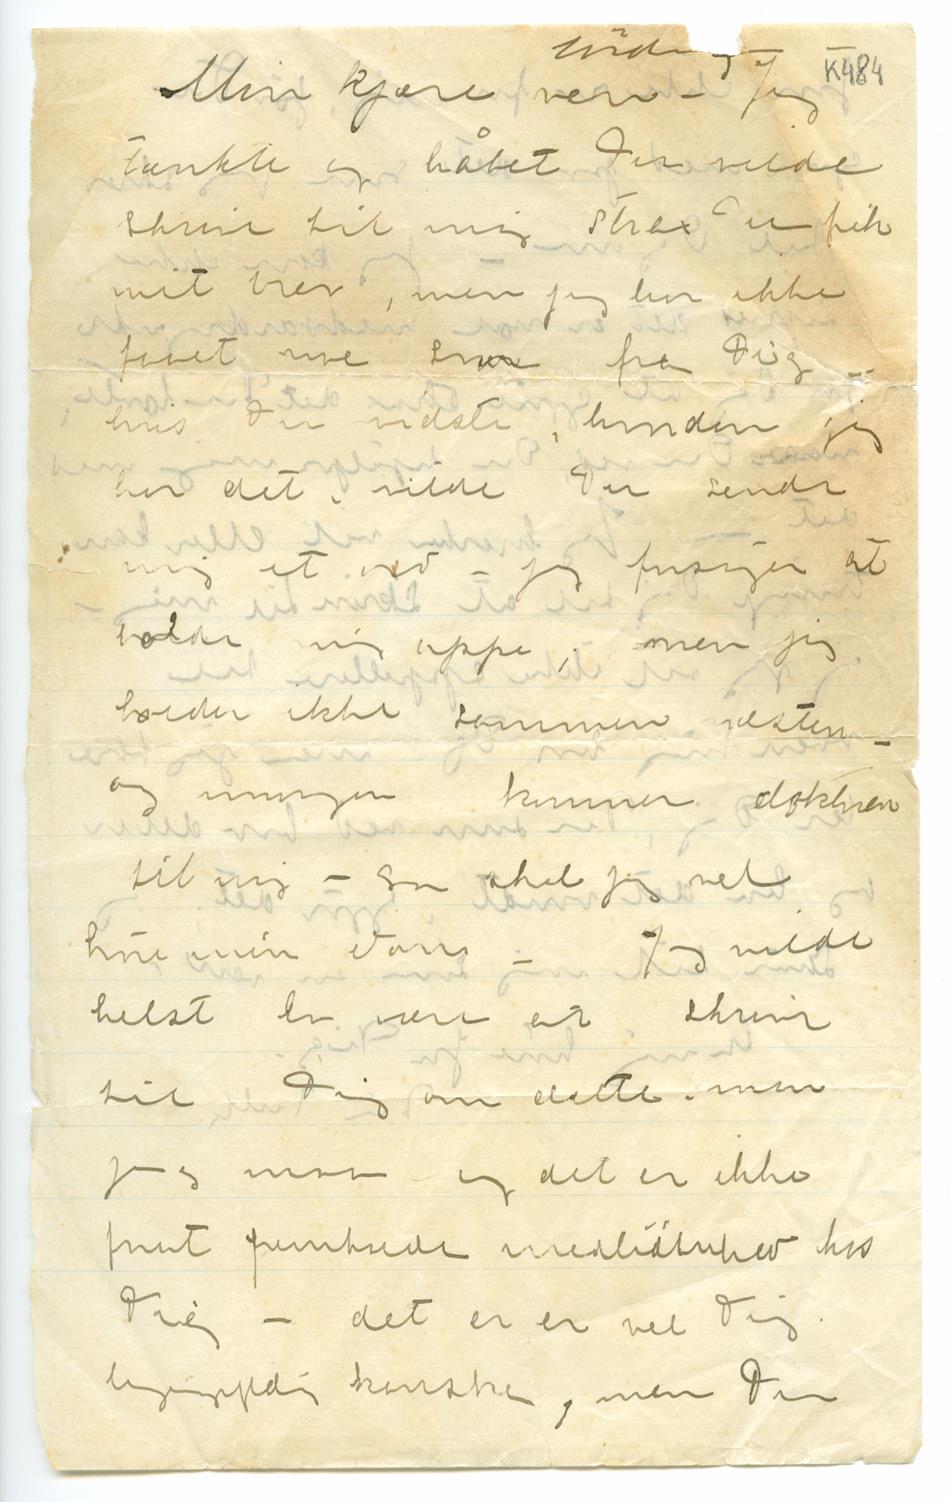 Lördag
K484
Min kjære ven – Jeg
tænkte og håbet Du vilde
skrive til mig strax Du fik
mit brev, men jeg har ikke
faaet noe svar fra Dig –
hvis Du vidste, hvordan jeg
har det, vilde Du sende
mig et ord – jeg forsøger at
holde mig oppe, men jeg
hæder ikke sammen næsten –
og imorgen kommer doktoren
til mig – saa skal jeg vel
höre min dom – Jeg vilde
helst la være at skrive
til Dig om dette, men
jeg maa og det er ikke
for at fremkalde medlidenhed hos
Dig – det er er vel Dig
ligegyldig kanske, men Du